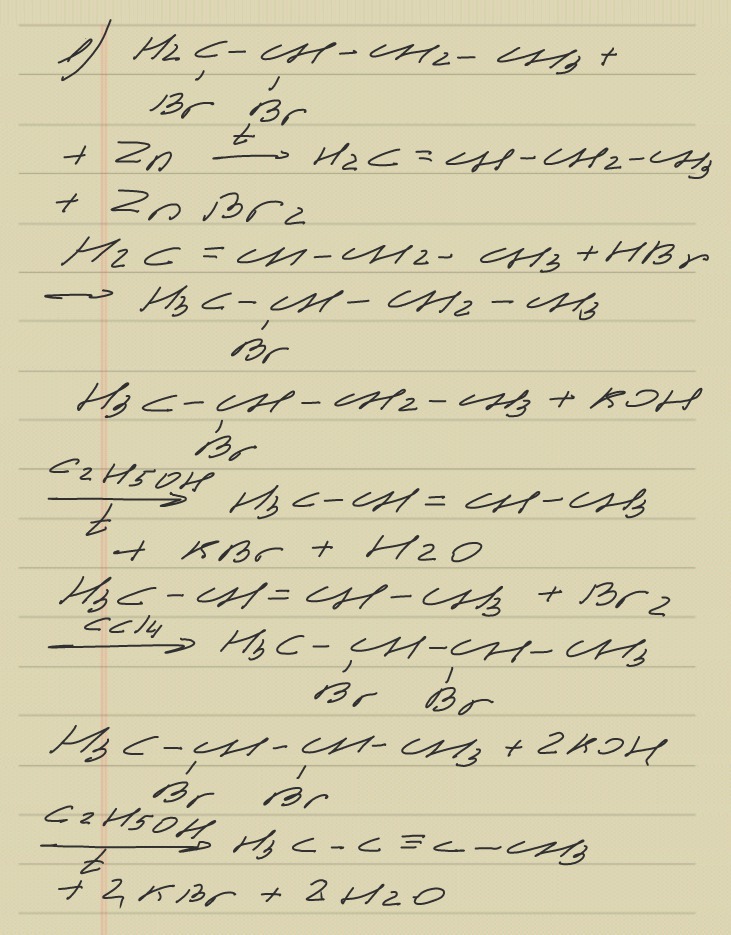 в) H2C – CH – CH2 – CH3 +
Br Br
+ Zn t⟶ H2C = CH – CH2 – CH3
+ Zn Br2
H2C = CH – CH2 – CH3 + HBr
⟶ H3C – CH – CH2 – CH3
Br
H3C – CH – CH2 – CH3 + KOH
Br
C2H5OH
⟶ H3C – CH = CH – CH3
t
+ KBr + H2O
H3C – CH = CH – CH3 + Br2
CCl4
⟶ H3C – CH – CH – CH3
Br Br
H3C – CH – CH – CH3 + 2KOH
Br Br
C2H5OH
⟶ H3C – C ≡ C – CH3
t
+ 2KBr + 2H2O